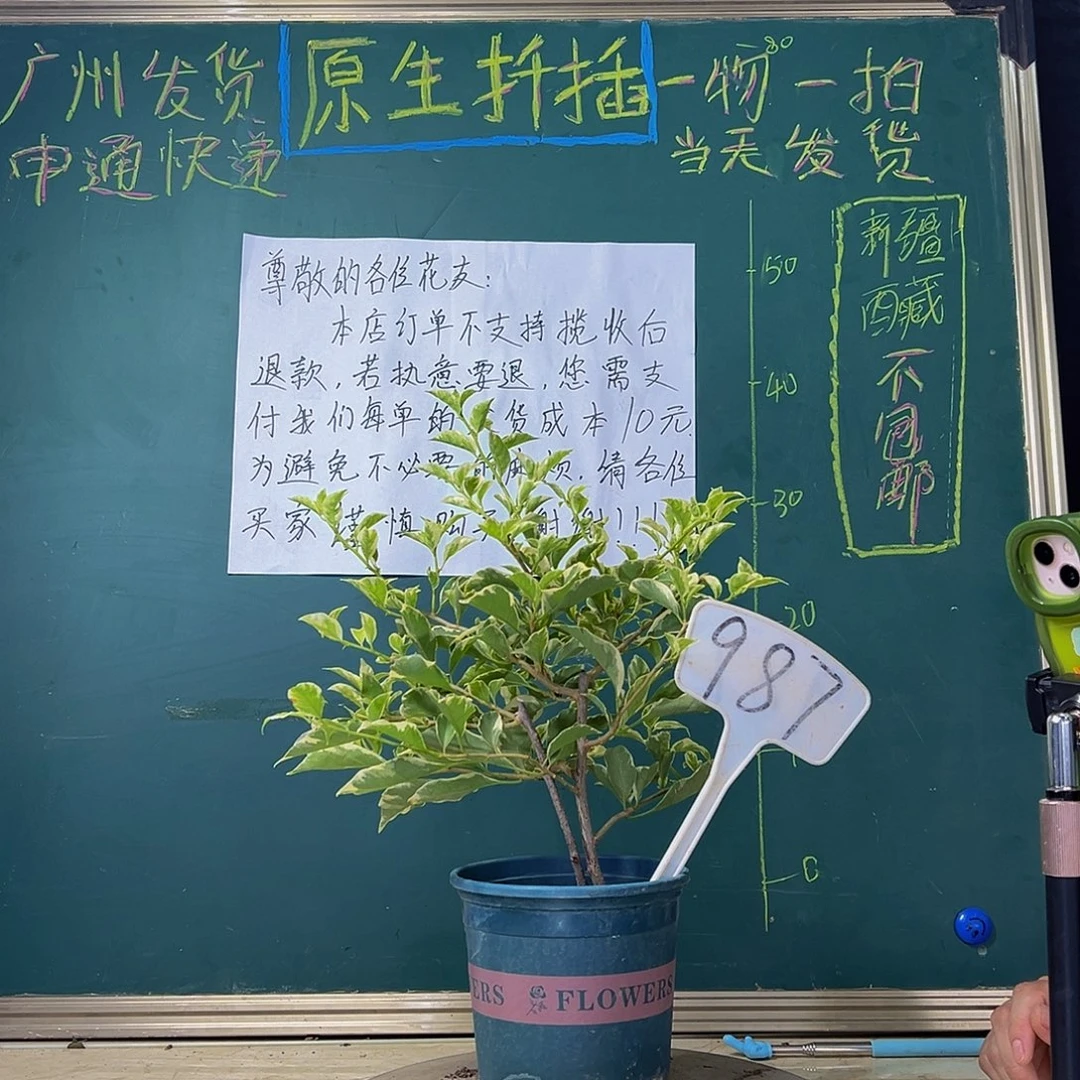 广州发货
原生扦插
一物一拍
80
申通快递
当天发货
尊敬的各位花友:
本店订单不支持揽收后
退款,若执意要退,您需支
付我们每单的 货成本10元
为避免不必要 麻烦,请各位
买家谨慎购买 谢谢!!!!
50
40
30
20
0
新疆
西藏
不
包
邮
987
ERS FLOWERS